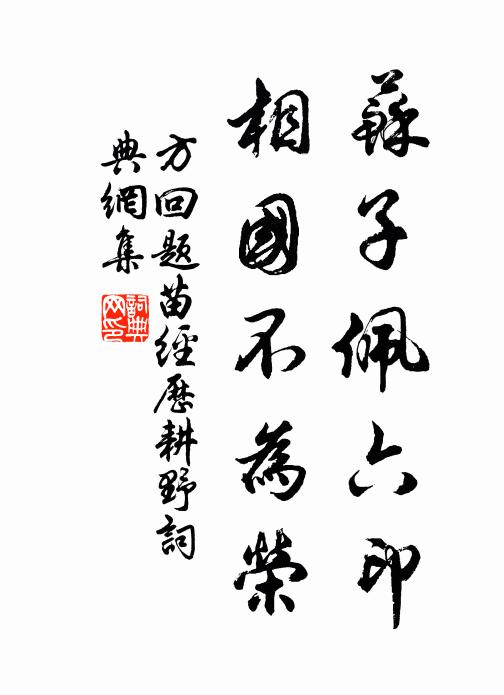 蘇子佩六印
相國不為榮
方回題苗經歷耕野詞
典網集
詞典
网印